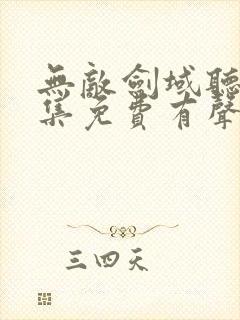 無敵劍域聽
集免費有聲
三四天